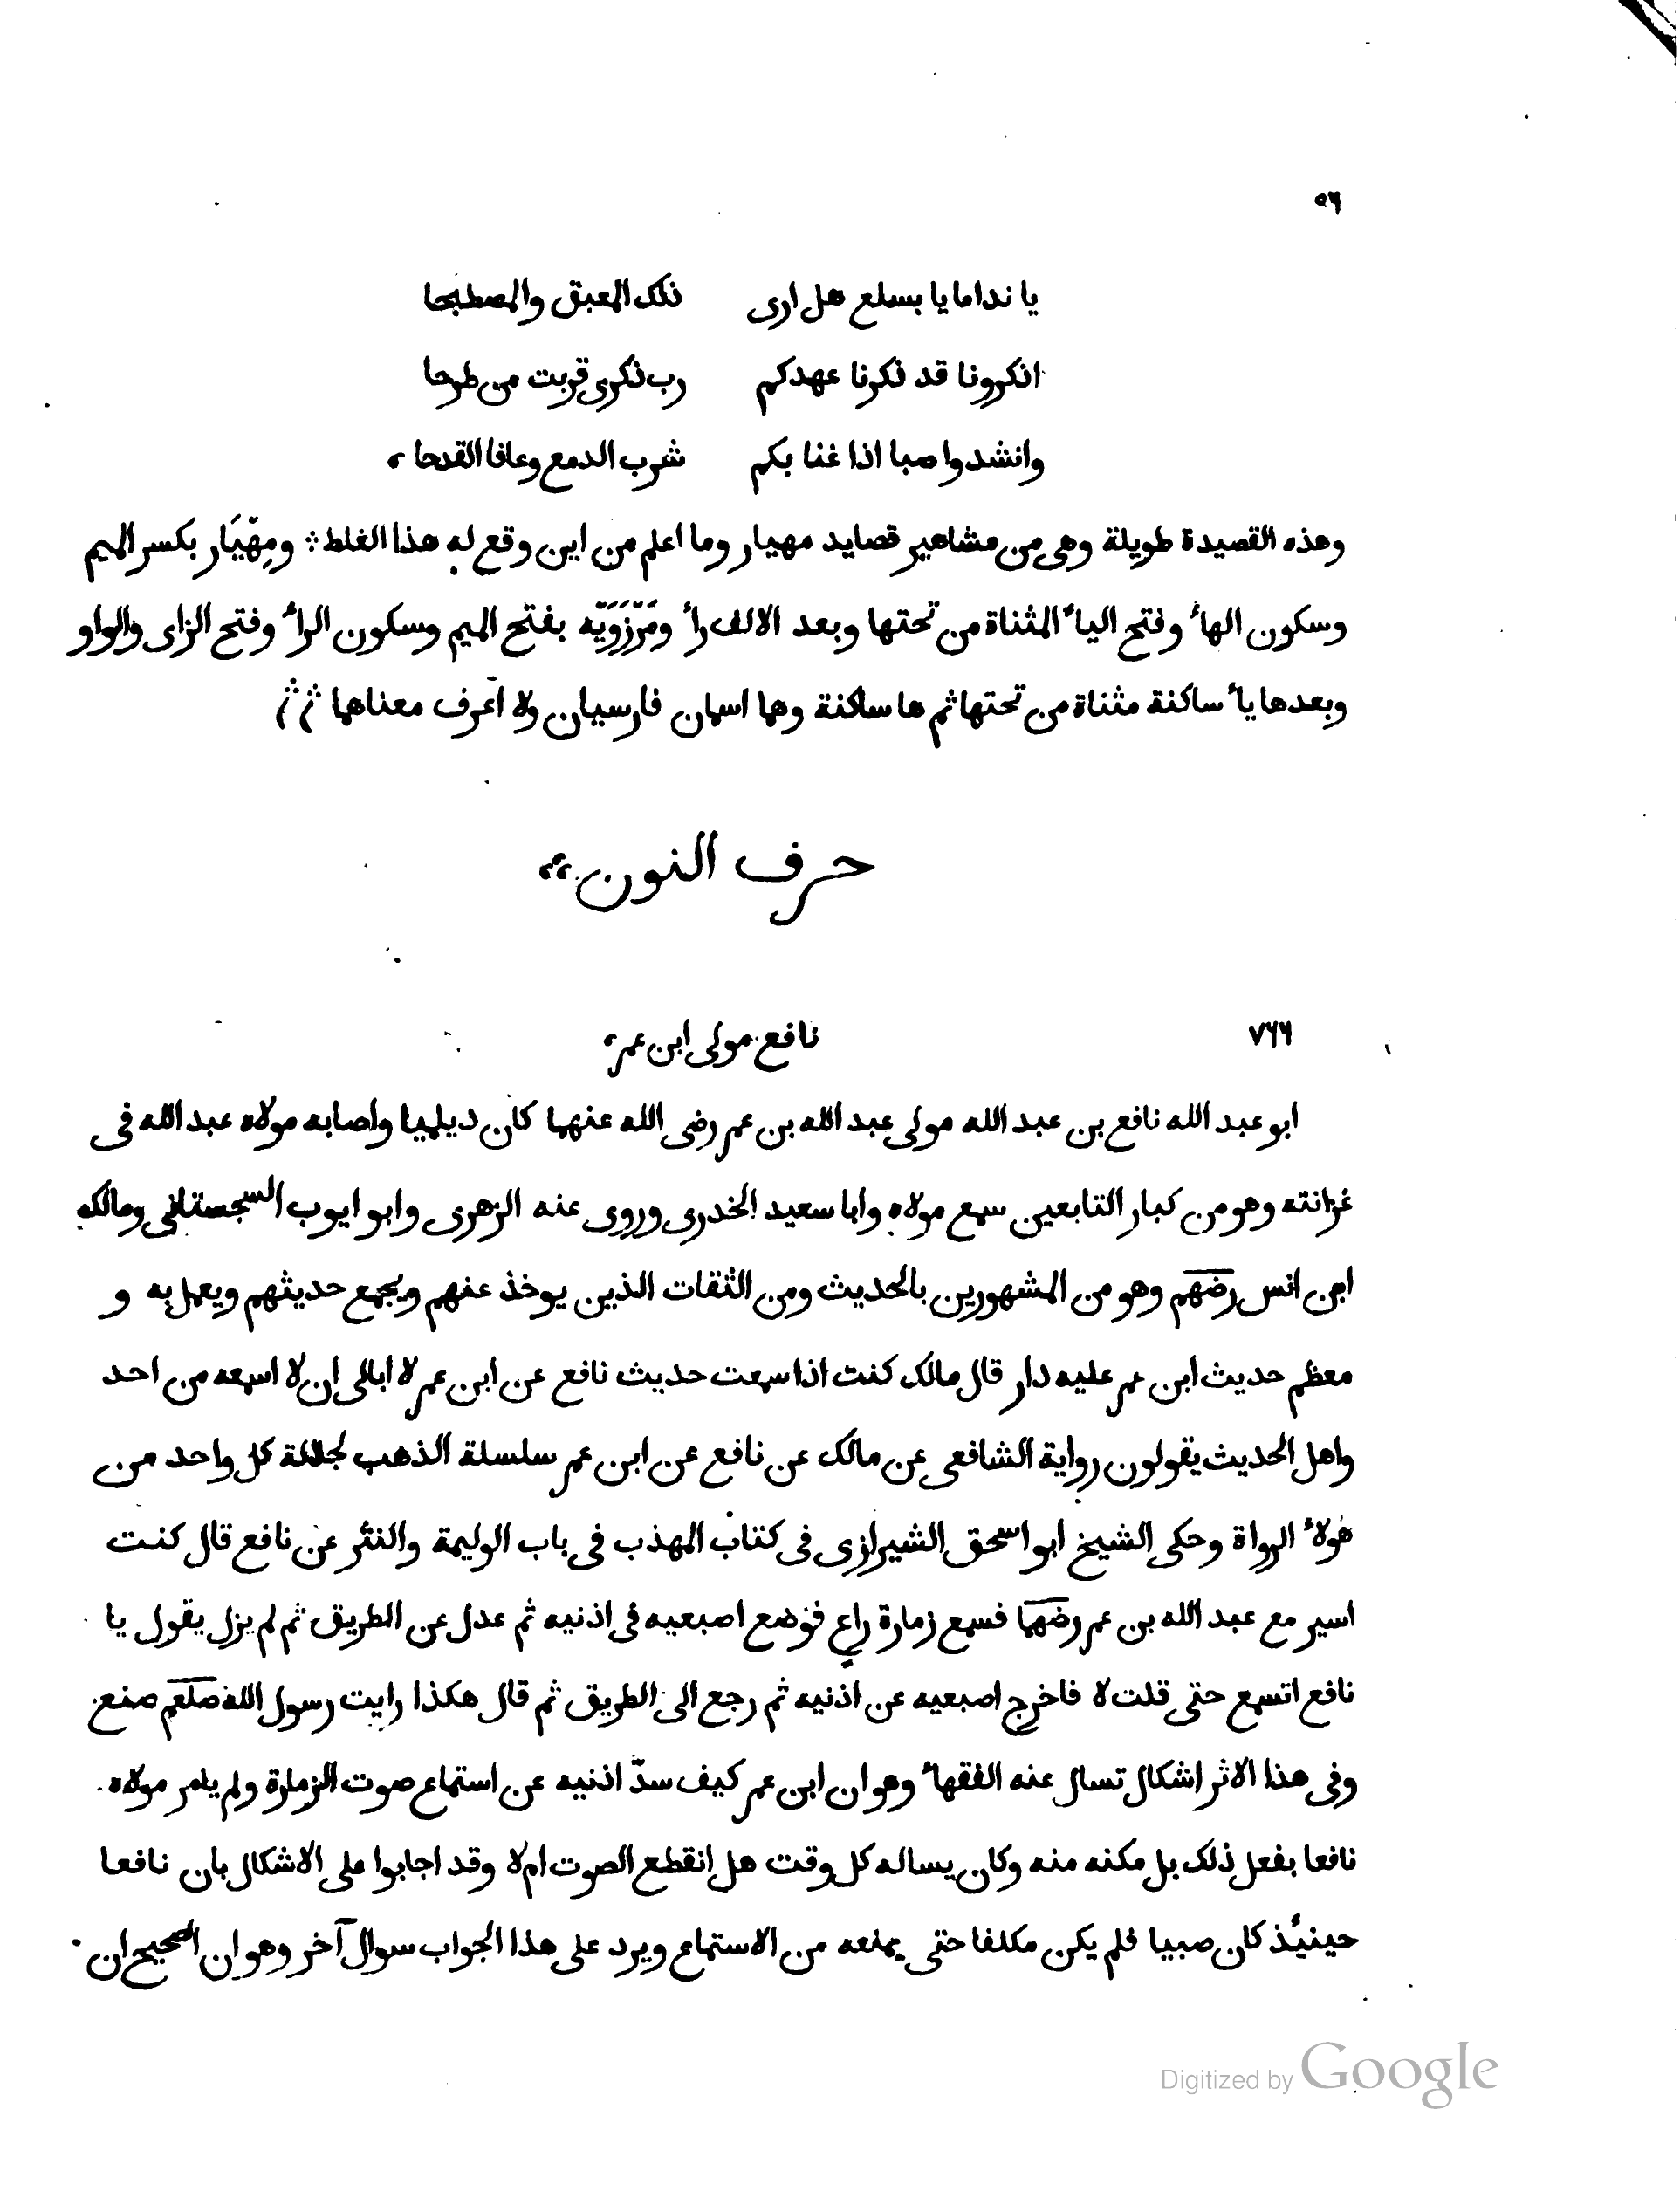 ٥٦
يا نداماىا بسلع هل ارى ذلك المعبق والمصطبحا
اذكرونا قد ذكرنا عهدكم رب ذكرى قربت من طرحا
وانشدوا صبا اذا غنا بكم شرب الدمع وعافا القدحا
وهذه القصيدة طويلة وهى من مشاهير قصايد مهيار وما اعلم من اين وقع له هذا الغلط ومِهْيَار بكسر الميم
وسكون الهاء وفتح الياء المثناة من تحتها وبعد الالف راء ومَرْزَوَيْه بفتح الميم وسكون الراء وفتح الزاى والواو
وبعدها ياء ساكنة مثناة من تحتها ثم ها ساكنة وهما اسمان فارسيان ولا اعرف معناهما
حرف النون
٧٦٦ نافع مولى ابن عمر
ابو عبد الله نافع بن عبد الله مولى عبد الله بن عمر رضى الله عنهما كان ديلميا واصابه مولاه عبد الله فى
غزانته وهو من كبار التابعين سمع مولاه وابا سعيد الخدرى وروى عنه الزهرى وابو ايوب السجستانى ومالك
ابن انس رضهم وهو من المشهورين بالحديث ومن الثقات الذين يوخذ عنهم ويجمع حديثهم ويعمل به و
معظم حديث ابن عمر عليه دار قال مالك كنت اذا سمعت حديث نافع عن ابن عمر لا ابالى ان لا اسمعه من احد
واهل الحديث يقولون رواية الشافعى عن مالك عن نافع عن ابن عمر سلسلة الذهب لجلالة كل واحد من
هولاء الرواة وحكى الشيخ ابو اسحق الشيرازى فى كتاب المهذب فى باب الوليمة والنثر عن نافع قال كنت
اسير مع عبد الله بن عمر رضهما فسمع زمارة راع فوضع اصبعيه فى اذنيه ثم عدل عن الطريق ثم لم يزل يقول يا
نافع اتسمع حتى قلت لا فاخرج اصبعيه عن اذنيه ثم رجع الى الطريق ثم قال هكذا رايت رسول الله صلعم صنع
وفى هذا الاثر اشكال تسال عنه الفقهاء وهو ان ابن عمر كيف سدّ اذنيه عن استماع صوت الزمارة ولم يامر مولاه
نافعا بفعل ذلك بل مكنه منه وكان يساله كل وقت هل انقطع الصوت ام لا وقد اجابوا على الاشكال بان نافعا
حينئذ كان صبيا فلم يكن مكلفا حتى يمنعه من الاستماع ويرد على هذا الجواب سوال آخر وهو ان الصحيح ان
Digitized by Google